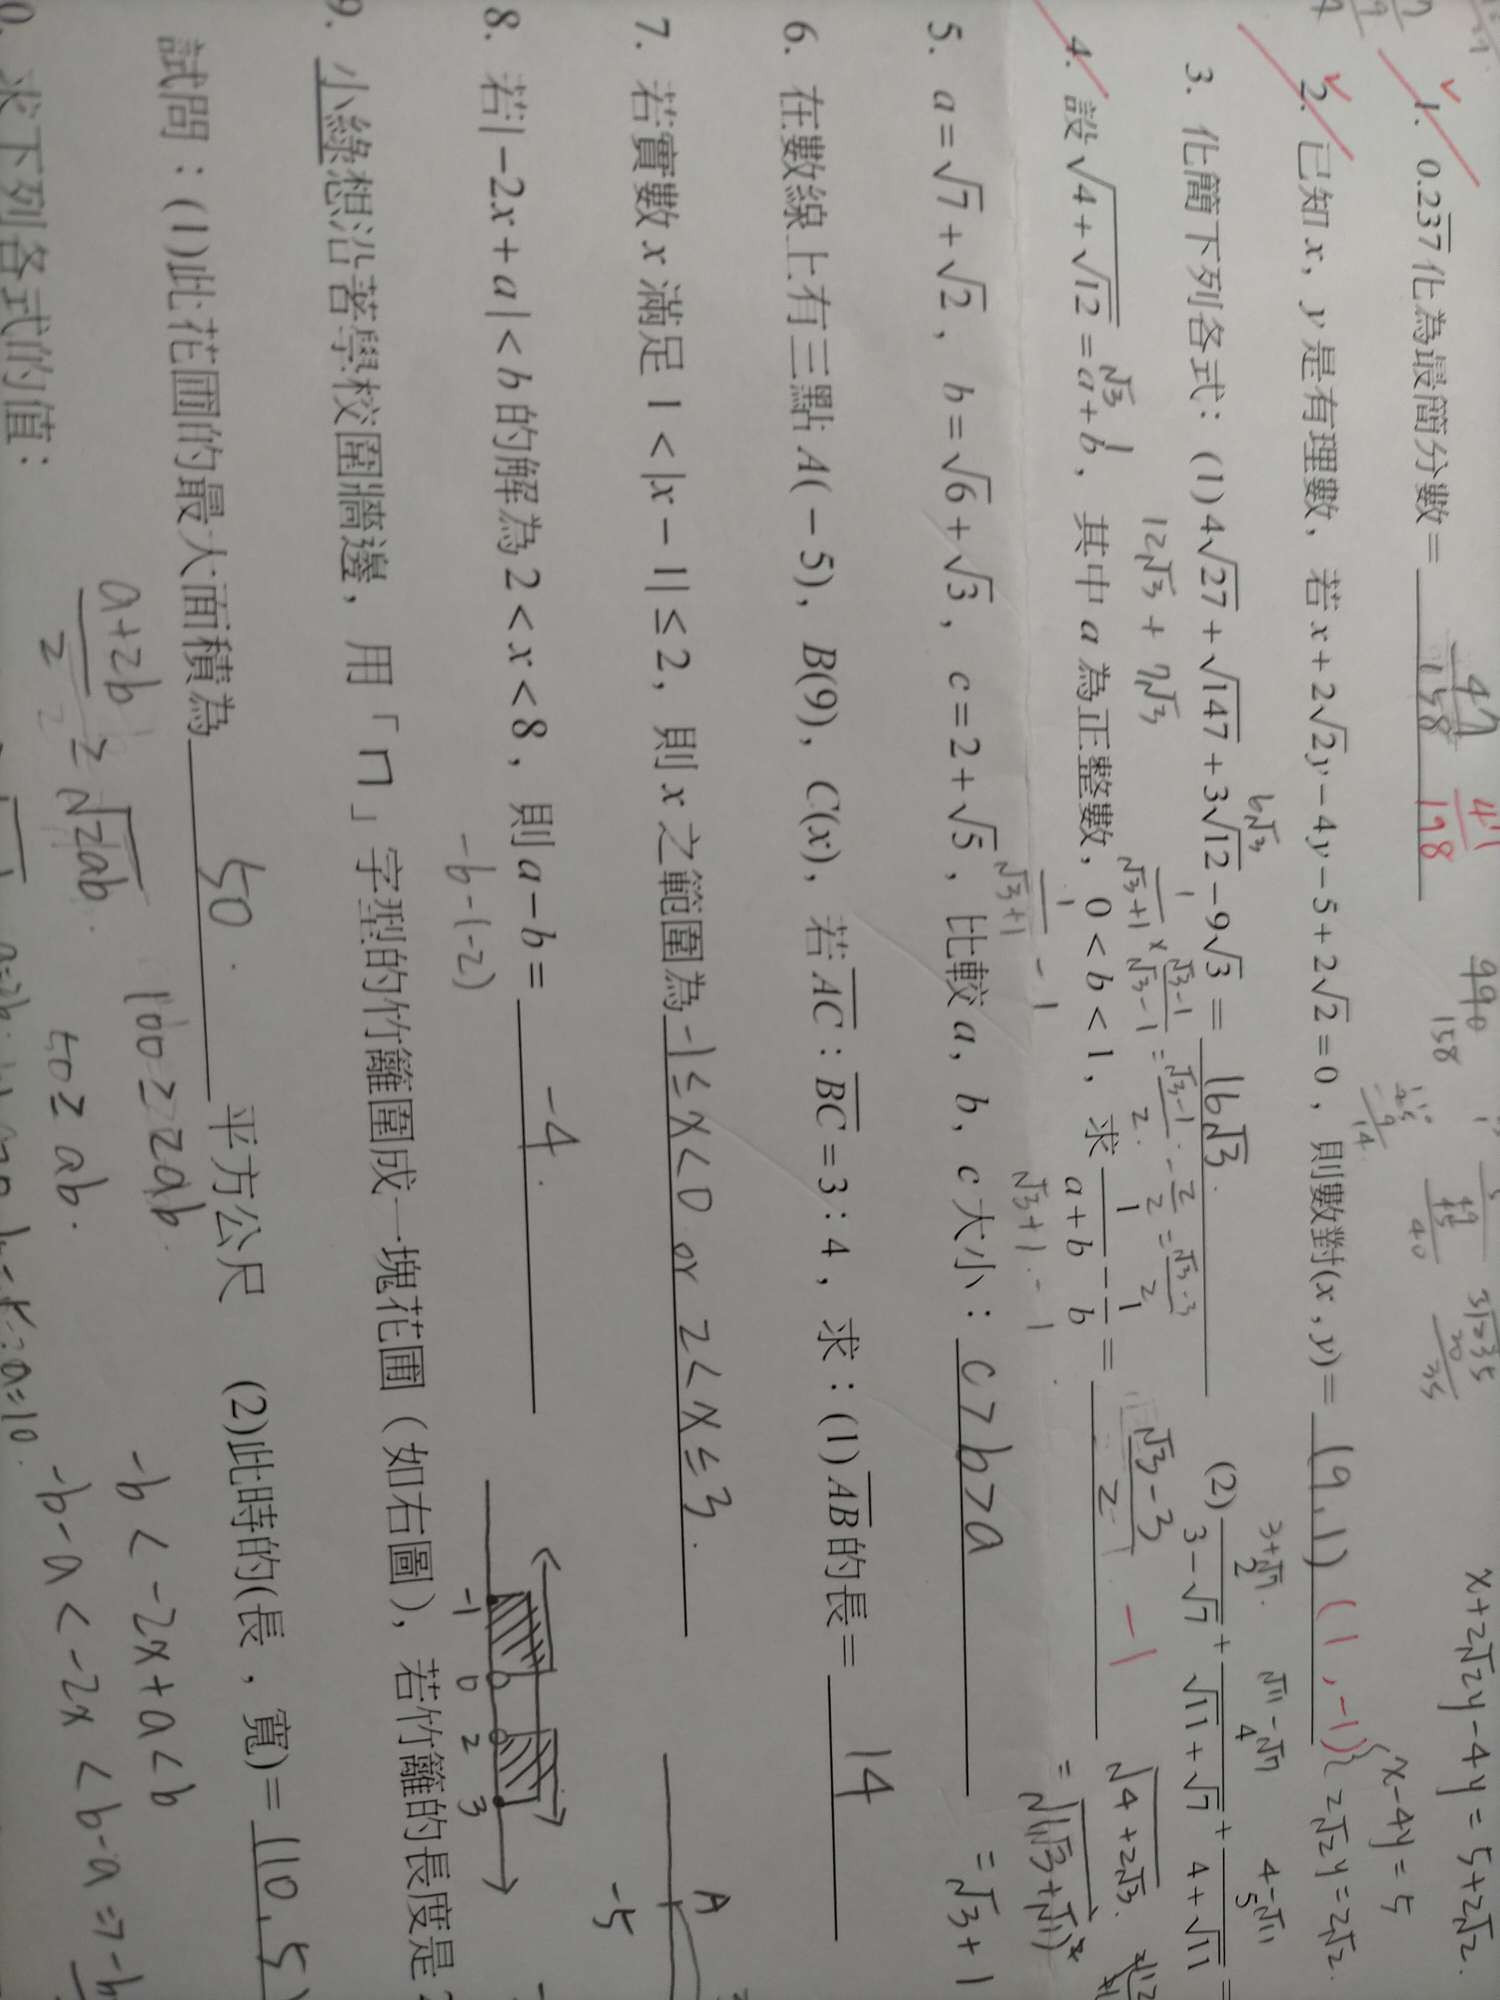 1. 0.237化為最簡分數= 47/158 47/198
990
158
x+2√2y-4y=5+2√2.
2. 已知x, y是有理數, 若x+2√2y-4y-5+2√2=0, 則數對(x, y)= (9,1) (1,-1)
x-4y=5
2√2y=2√2.
3. 化簡下列各式: (1)4√27+√147+3√12-9√3= 16√3. (2) /(3-√7)+ /(√11+√7)+ /(4+√11)=
6√3
12√3+7√3
(3+√7)/2. (√11-√7)/4 (4-√11)/5
4. 設√(4+√12)=a+b, 其中a為正整數, 0<b<1, 求1/(a+b)-1/b= (√3-3)/2 -1
√3 1
1/(√3+1)×(√3-1)/(√3-1)=(√3-1)/2.-2/2=(√3-3)/2
√(4+2√3.
=√(√3+√1)²
=√3+1
1/(√3+1)-1
√3+1.-1
5. a=√7+√2, b=√6+√3, c=2+√5, 比較a, b, c大小: c>b>a
6. 在數線上有三點A(-5), B(9), C(x), 若AC:BC=3:4, 求:(1)AB的長= 14
A
-5
7. 若實數x滿足1<|x-1|≤2, 則x之範圍為 -1≤x<0 or 2<x≤3.
-1 0 2 3
8. 若|-2x+a|<b的解為2<x<8, 則a-b= -4.
-6-(-2)
9. 小綠想沿著學校圍牆邊, 用「ㄇ」字型的竹籬圍成一塊花圃(如右圖), 若竹籬的長度是
試問:(1)此花圃的最大面積為 50. 平方公尺 (2)此時的(長, 寬)= (10,5)
(a+2b)/2≥√2ab.
100≥2ab.
50≥ab.
-b<-2x+a<b
-b-a<-2x<b-a
0. 求下列各式的值:
a=10.